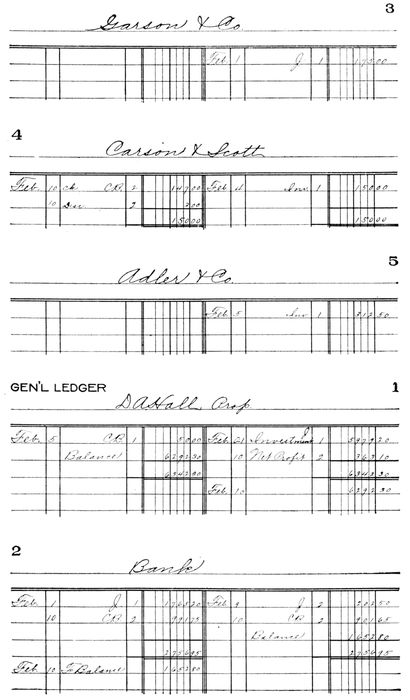 3
Garson & Co.
Feb 1 J 1 175.00
4
Carson & Scott
Feb. 10 ck C.B. 2 147 00 Feb 4 Inv. 1 150 00
10 Disc 2 3 00
150 00 150 00
5
Adler & Co.
Feb 5 Inv 1 312 50
GEN'L LEDGER 1
D A Hall, Prop.
Feb. 5 C.B. 1 50 00 Feb. 1 Investment 1
Balance 6292 30 10 Net Profit 2 363 10
6342 30 6342 30
Feb. 10 6292 30
2
Bank
Feb. 1 J 1 1765 20 Feb 9 J 2 202 50
10 C.B. 2 991 75 10 C.B. 2 901 65
Balance 1652 80
2756 95 2756 95
Feb 10 To Balance 1652 80